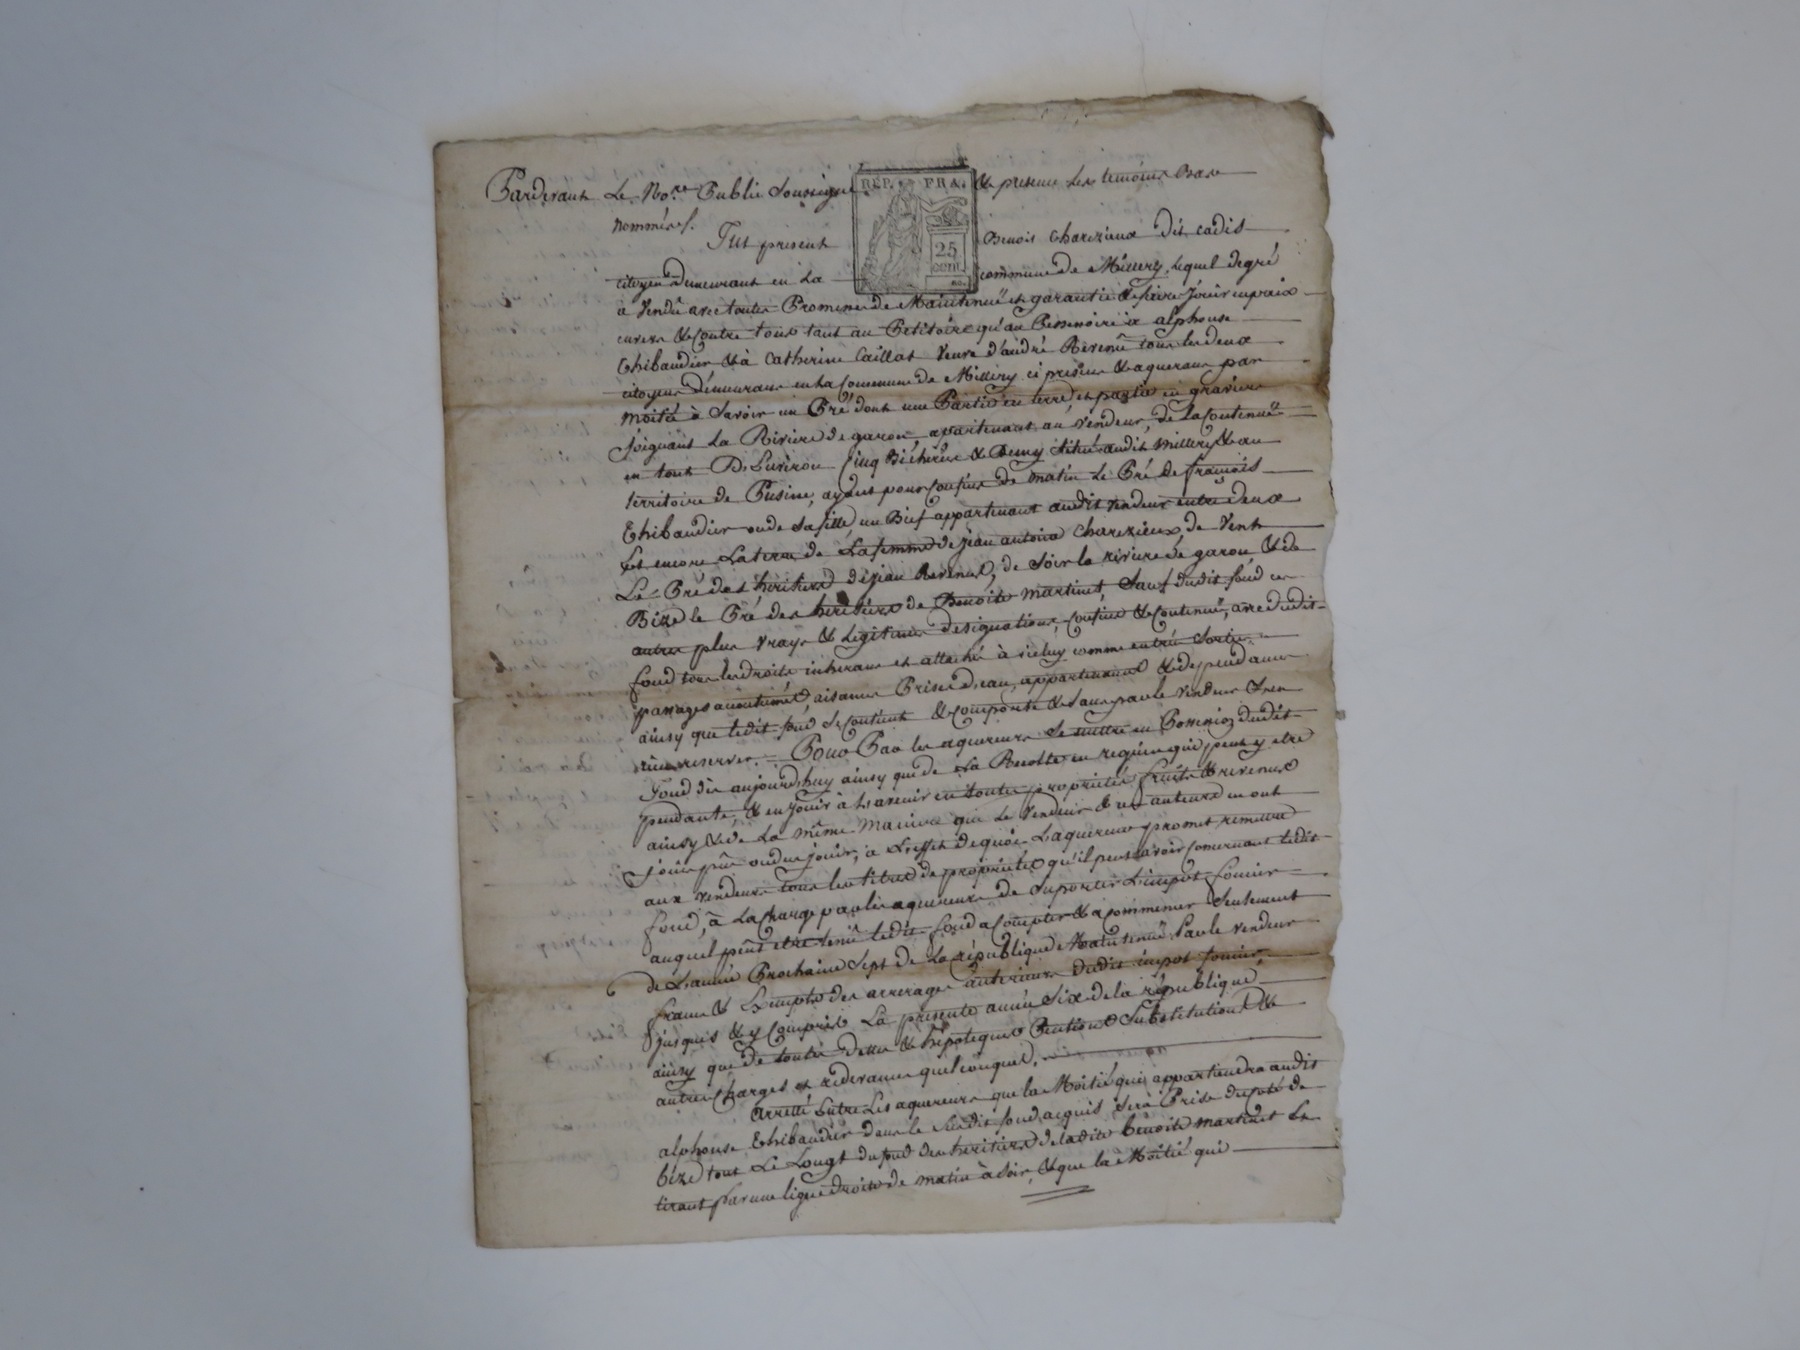 Pardevant Le No.re Public Soussigné & presence des temoins Bas
nommés/.
RÉP. FRA.
25
cent.
Fut present Benoit Charezieux dit cadis
citoyen Demeurant en La commune de Millery, lequel de gré
à Vendû avec toutes Promesses de Maintenuë et garantie & faire Jouir en paix
envers & Contre tous tant au Petitoire qu'au Possessoire à alphonse
Thibaudier & à Catherine Caillat Veuve d'andré Revenû tous les deux
citoyens Démeurans en la Commune de Millery ci presens & aquereurs par
moitié à Savoir un Pré dont une Partie en terre et partie en graviers
Joignant La Riviere de garon, apartenant au Vendeur, de la Contenuë
en tout D'Environ Cinq Bicherées & Demy Situé audit Millery & au
territoire de Pusine, ayant pour Confins de matin Le Pré de francois
Thibaudier ou de Sa fille, un Bief appartenant audit Vendeur entre deux
Et encore La terre de La femme de jean antoine Charezieux, de Vent
Le Pré des heritiers de jean Revenus, de Soir la riviere de garon & de
Bize le Pré des heritiers de Benoite Martinet, Sauf dudit fond ses
autres plus Vrays & Legitimes designations, Confins & Contenuë, avec dudit
fond tous les droits inherans et attachés à icelluy comme entrées Sorties
passages acoutumés, aisances Prises d'eau, appartenances & dependances
ainsy que ledit fond Se Contient & Comporte & Sans par le Vendeur S'en
rien reserver. = Pour Par les aquereurs Se mettre en Possession dudit
Fond dès aujourd'huy ainsy que de La Recolte en
pendante, & en Jouir à L'avenir en toutes proprietés fruits & revenus
ainsy & de La même Maniere que Le Vendeur & ses auteurs en ont
Jouis pû ou dû jouir, à L'effet de quoi L'aquereur promet remettre
aux Vendeurs tous les titres de proprietés qu'il peut avoir Concernant ledit
fond, à La Charge par les aquereurs de Suporter L'impot foncier
auquel peut etre tenû ledit fond a Compter & à Commencer Seulement
de L'année Prochaine Sept de La république Maintenuë Par le Vendeur
franc & Exempts des arrerages antérieurs dudit impot foncier,
jusquis & y Compris La presente année Six de la république
ainsy que de toutes Dettes & hipoteques Pentions Substitutions &
autres Charges et redevances quelconques.
arretté Entre Les aquereurs que la Moitié qui appartiendra audit
alphonse Thibaudier dans le Susdit fond acquis Sera Prise du Coté de
bize tout Le Longt du fond des heritiers de ladite benoite Martinet En
tirant par une ligne droite de matin à Soir, & que la Moitié qui